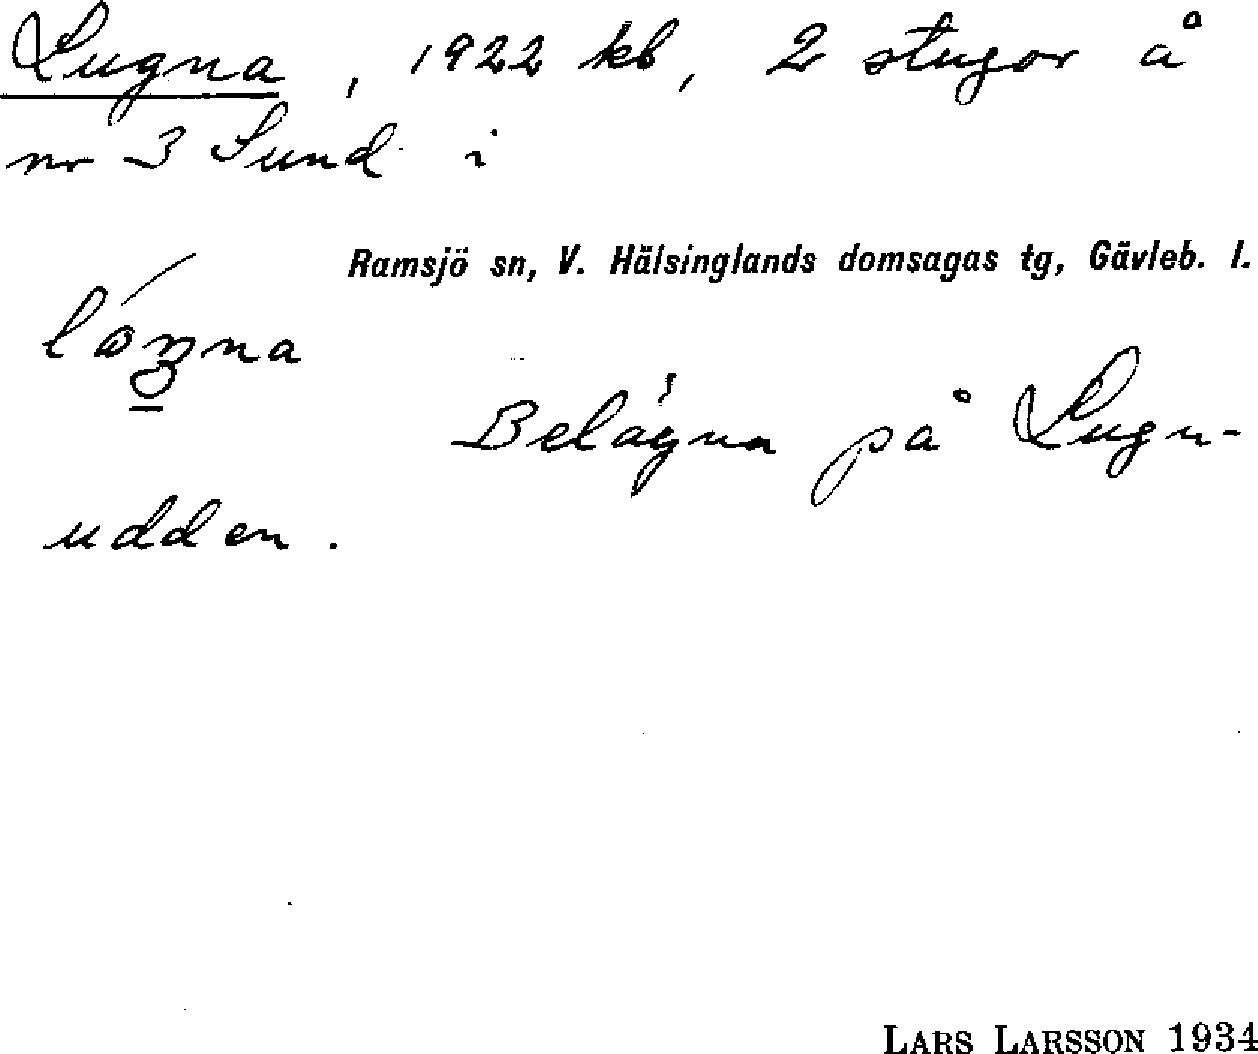 Lugna, 1922 kb, 2 stugor å
nr 3 Sund i
Ramsjö sn, V. Hälsinglands domsagas tg, Gävleb. l.
Belägna på Lugn-
udden.
LARS LARSSON 1934